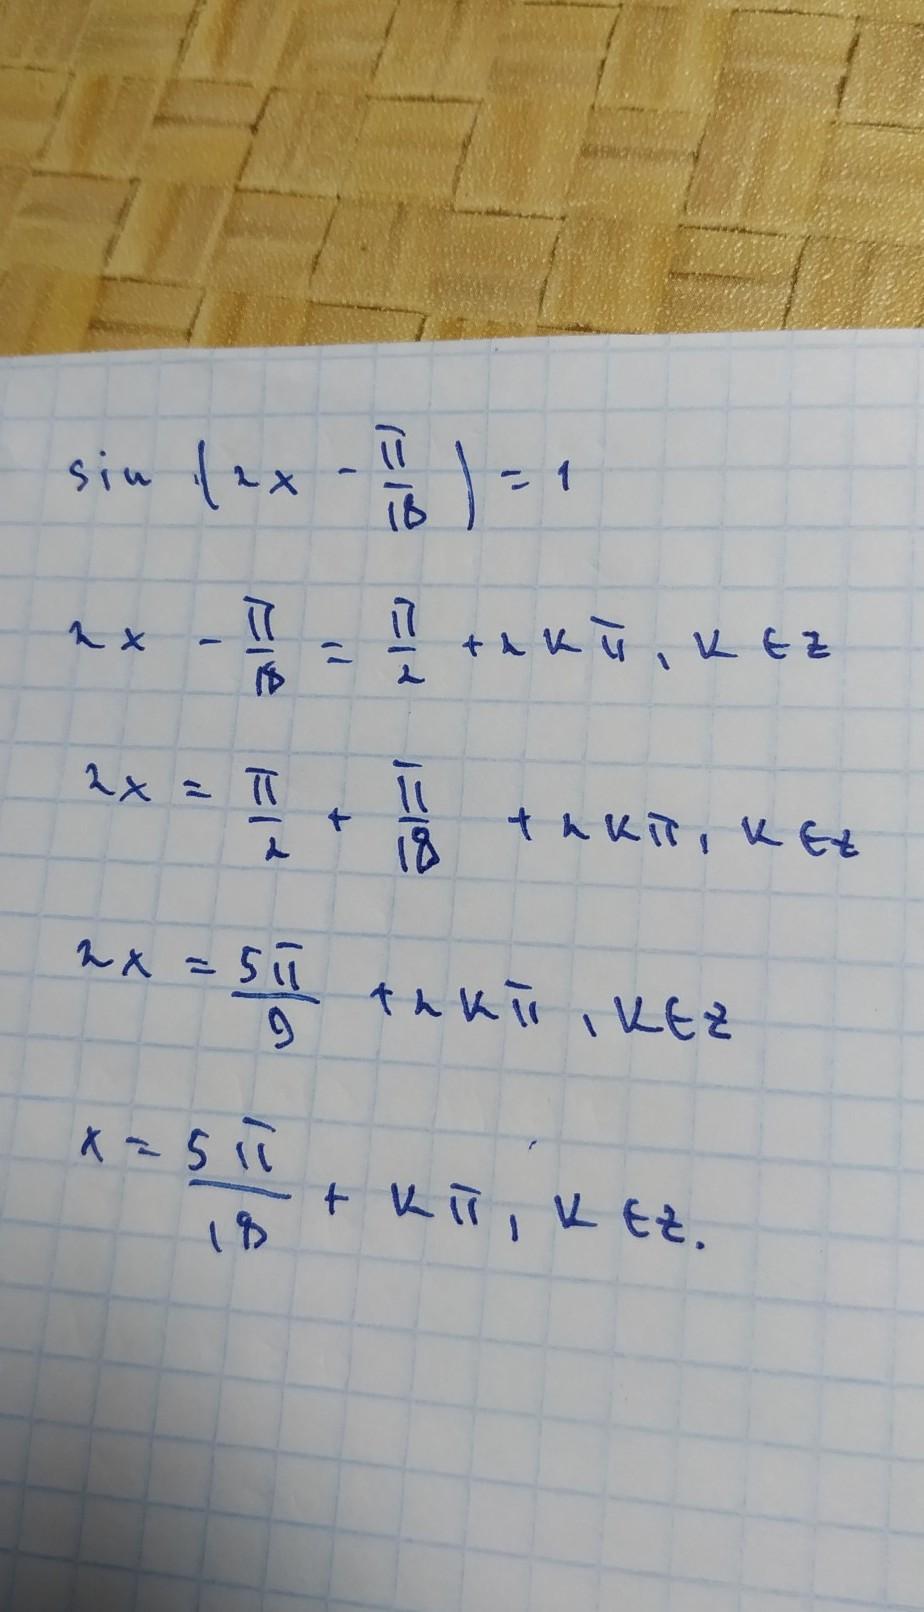 sin (2x - π/18) = 1
2x - π/18 = π/2 + 2kπ, k ∈ z
2x = π/2 + π/18 + 2kπ, k ∈ z
2x = 5π/9 + 2kπ, k ∈ z
x = 5π/18 + kπ, k ∈ z.